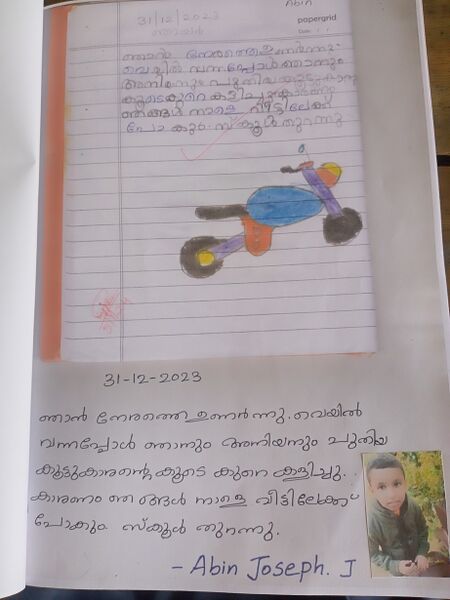 Abin
31/12/2023
ഞായർ
papergrid
Date: / /
ഞാൻ നേരത്തെ ഉണർന്നു.
വെയിൽ വന്നപ്പോൾ ഞാനും
അനിയനും പുതിയ കൂട്ടുകാര
കൂടെ കുറെ കളിച്ചു കാരണം
ഞങ്ങൾ നാളെ വീട്ടിലേക്ക്
പോകും. സ്കൂൾ തുറന്നു
31-12-2023
ഞാൻ നേരത്തെ ഉണർന്നു. വെയിൽ
വന്നപ്പോൾ ഞാനും അനിയനും പുതിയ
കൂട്ടുകാരന്റെ കൂടെ കുറെ കളിച്ചു.
കാരണം ഞങ്ങൾ നാളെ വീട്ടിലേക്ക്
പോകും. സ്കൂൾ തുറന്നു.
- Abin Joseph. J